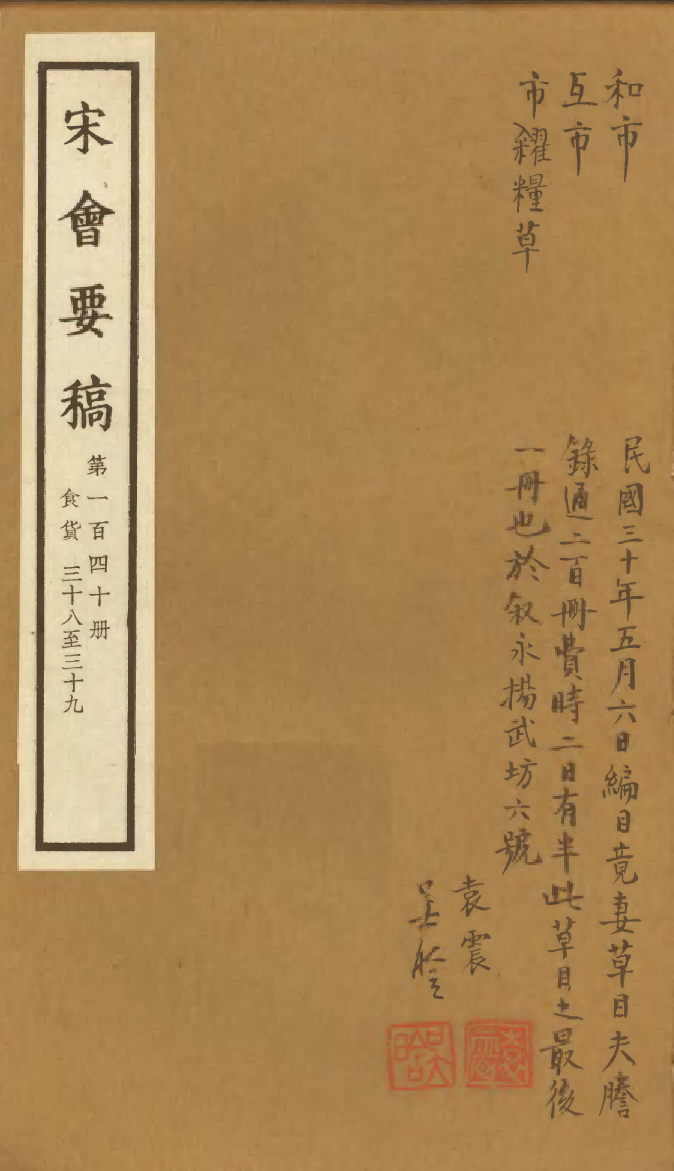 和市
互市
市糴糧草
民國三十年五月六日編目竟妻草目夫謄
錄通二百冊費時二日有半此草目之最後
一冊也於叙永揚武坊六號
袁震
吳晗
袁震
吳晗
宋會要稿
第一百四十册
食貨 三十八至三十九